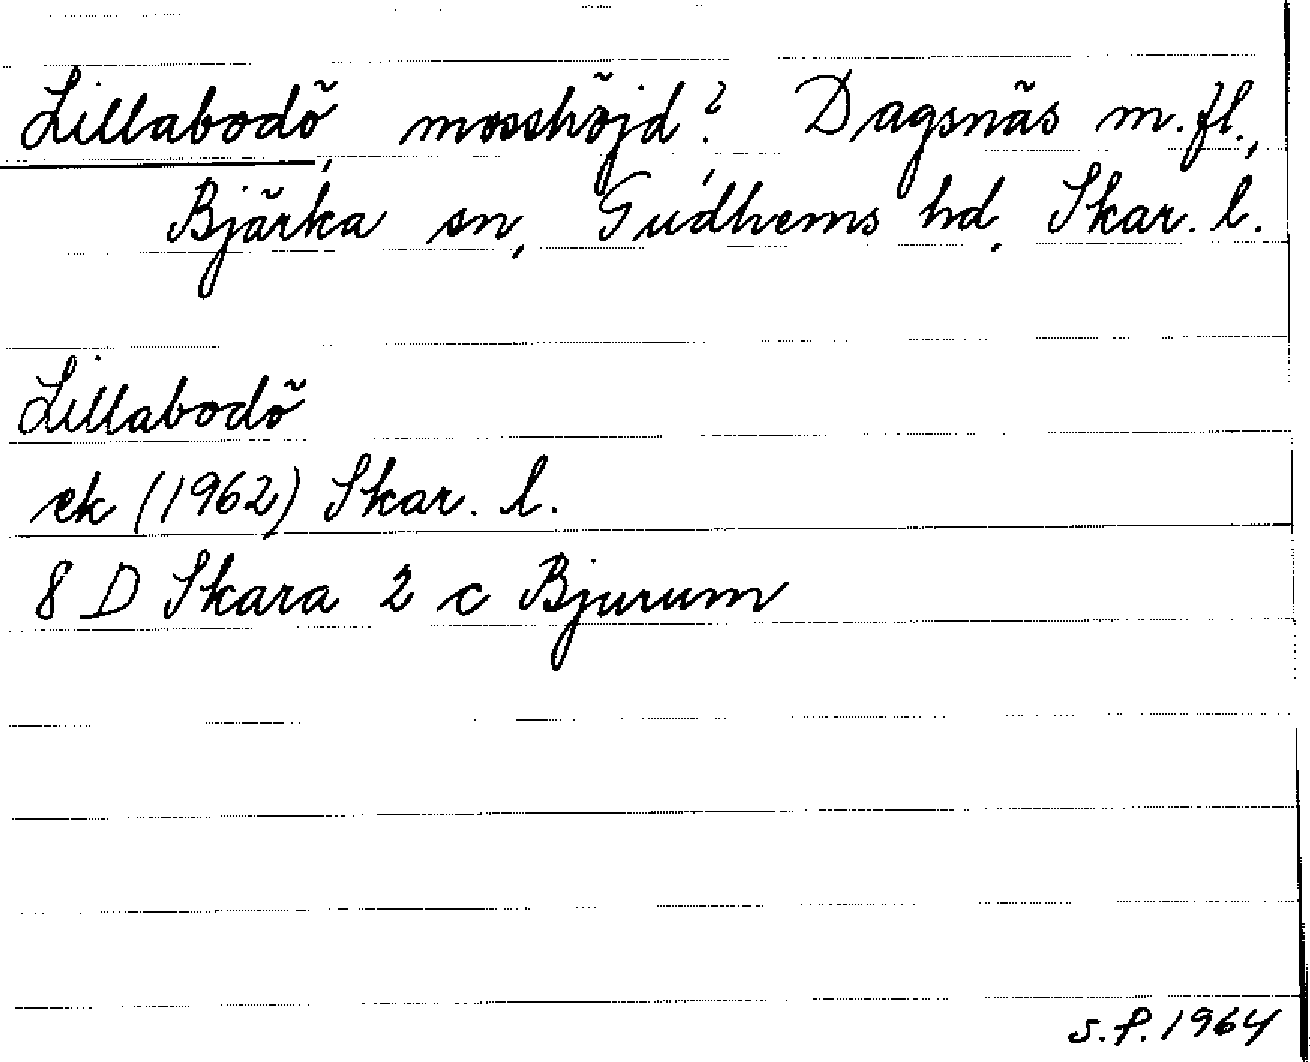 Lillabodö, mosshöjd?, Dagsnäs m.fl.,
Bjärka sn, Gudhems hd, Skar. l.
Lillabodö
ek (1962) Skar. l.
8 D Skara 2 c Bjurum
S.F. 1964